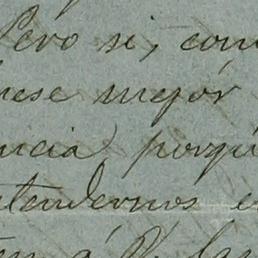 Pero si, com
ese mejór
ncia, porqu
tendernos e